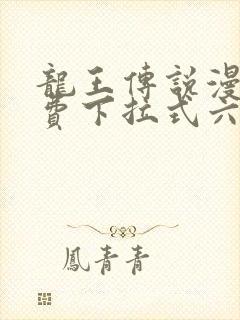 龍王傳說漫
費下拉式六
鳳青青